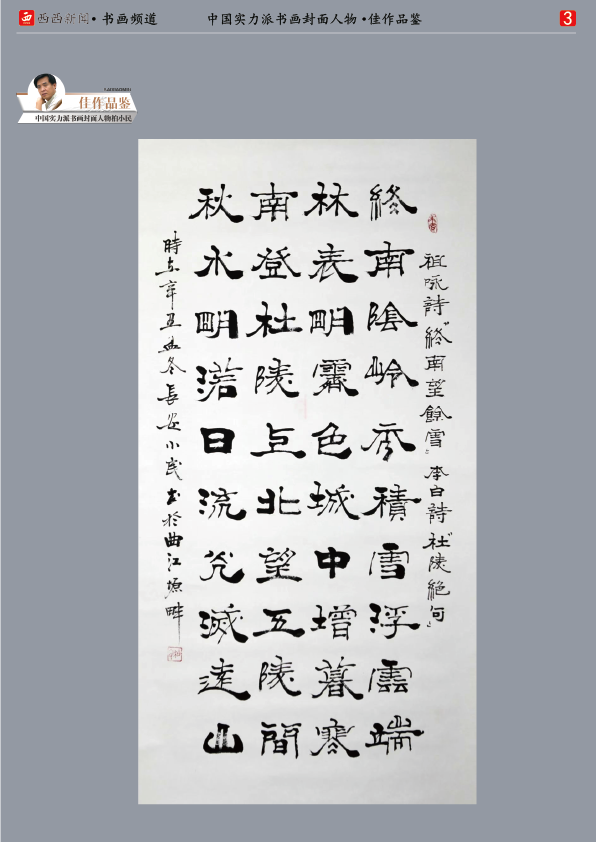 西 西西新闻 • 书画频道 中国实力派书画封面人物 • 佳作品鉴 3
佳作品鉴
中国实力派书画封面人物柏小民
祖咏詩"終南望餘雪" 李白詩"杜陵絕句"
終南陰岭秀積雪浮雲端
林表明霽色城中增暮寒
南登杜陵上北望五陵間
秋水明落日流光滅遠山
時在辛丑孟冬長安小民書於曲江塬畔